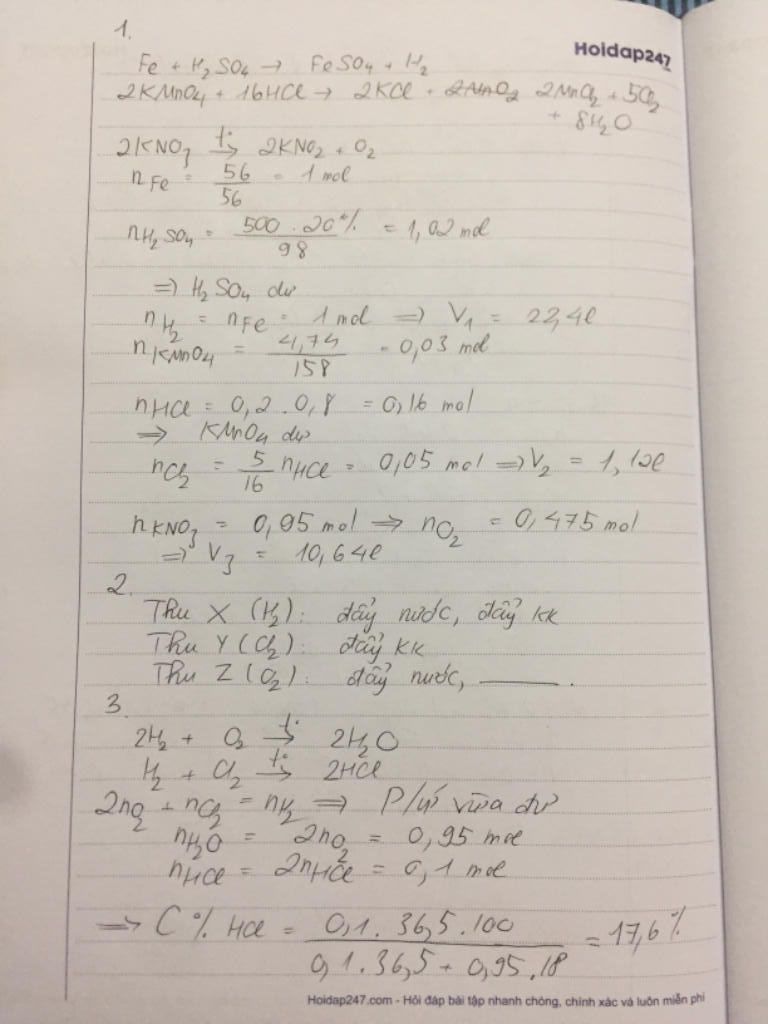 1.
Hoidap247
Fe + H2SO4 → FeSO4 + H2
2KMnO4 + 16HCl → 2KCl + 2MnCl2 + 5Cl2
+ 8H2O
2KNO3 t°→ 2KNO2 + O2
nFe = 56/56 = 1 mol
nH2SO4 = 500 . 20%/98 = 1,02 mol
=> H2SO4 dư
nH2 = nFe = 1 mol => V1 = 22,4l
nKMnO4 = 4,74/158 = 0,03 mol
nHCl = 0,2 . 0,8 = 0,16 mol
=> KMnO4 dư
nCl2 = 5/16 nHCl = 0,05 mol => V2 = 1,12l
nKNO3 = 0,95 mol => nO2 = 0,475 mol
=> V3 = 10,64l
2.
Thu X (H2): đẩy nước, đẩy kk
Thu Y (Cl2): đẩy kk
Thu Z (O2): đẩy nước, ———.
3.
2H2 + O2 t°→ 2H2O
H2 + Cl2 t°→ 2HCl
2nO2 + nCl2 = nH2 => P/ứ vừa đủ
nH2O = 2nO2 = 0,95 mol
nHCl = 2nHCl = 0,1 mol
=> C% HCl = 0,1 . 36,5 . 100/0,1 . 36,5 + 0,95 . 18 = 17,6%
Hoidap247.com - Hỏi đáp bài tập nhanh chóng, chính xác và luôn miễn phí